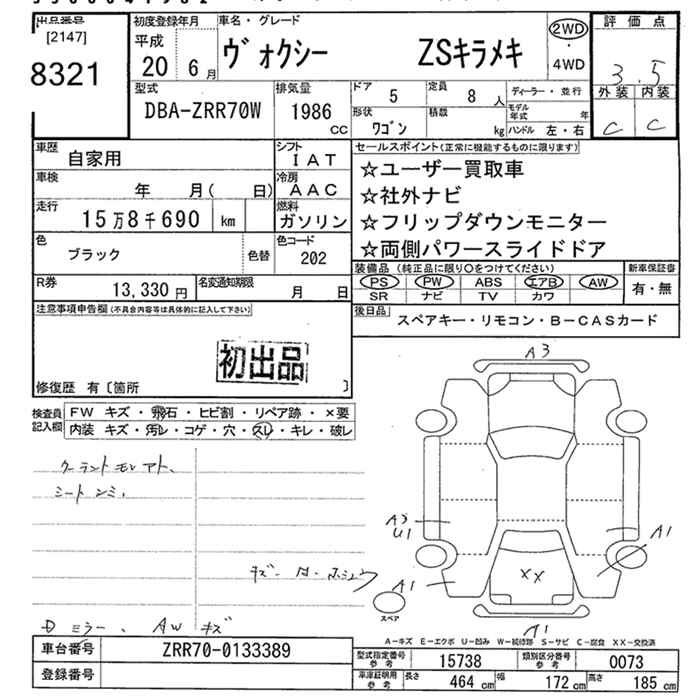 出品番号
[2147]
8321
初度登録年月
平成
20 6月
車名・グレード
ヴォクシー ZSキラメキ
2WD
・
4WD
評価点
3.5
外装 内装
C C
型式
DBA-ZRR70W
排気量
1986
CC
ドア 5
定員 8 人
ディーラー・並行
形状 ワゴン
積載 kg
モデル年式 年
ハンドル 左・右
車歴 自家用
シフト IAT
車検 年 月( 日)
冷房 AAC
走行 15万8千690 km
燃料 ガソリン
色 ブラック 色替
色コード 202
R券 13,330円
名変通知期限 月 日
セールスポイント(正常に機能するものに限ります)
☆ユーザー買取車
☆社外ナビ
☆フリップダウンモニター
☆両側パワースライドドア
装備品 (純正品に限り○をつけてください)
新車保証書
PS PW ABS エアB AW
SR ナビ TV カワ
有・無
後日品 スペアキー・リモコン・B-CASカード
注意事項申告欄(不具合内容等は具体的に記入して下さい)
初出品
修復歴 有〔箇所 〕
検査員記入欄
FW キズ・飛石・ヒビ割・リペア跡・×要
内装 キズ・汚レ・コゲ・穴・スレ・キレ・破レ
クーラントモレアト、
シートシミ、
Dミラー、AWキズ
A3
A3
U1
A1
A1
XX
A1
スペア
A-キズ E-エクボ U-凹み W-補修跡 S-サビ C-腐食 XX-交換済
車台番号 ZRR70-0133389
登録番号
型式指定番号参考 15738
類別区分番号参考 0073
車庫証明用参考 長さ 464 cm 幅 172 cm 高さ 185 cm